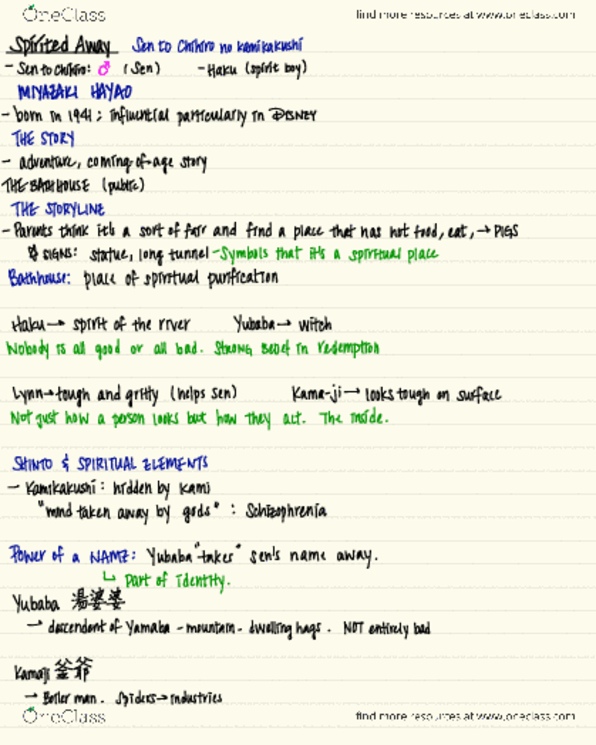 OneClass find more resources at www.oneclass.com
Spirited Away Sen to Chihiro no kamikakushi
- Sen to Chihiro: ♂ (Sen) - Haku (spirit boy)
MIYAZAKI HAYAO
- born in 1941; influential particularly in DISNEY
THE STORY
- adventure, coming-of-age story
THE BATHHOUSE (public)
THE STORYLINE
- Parents think it's a sort of fair and find a place that has hot food, eat, → PIGS
SIGNS: statue, long tunnel - Symbols that it's a spiritual place
Bathhouse: place of spiritual purification
Haku → spirit of the river Yubaba → witch
Nobody is all good or all bad. Strong belief in redemption
Lynn → tough and gritty (helps sen) Kama-ji → looks tough on surface
Not just how a person looks but how they act. The inside.
SHINTO & SPIRITUAL ELEMENTS
- Kamikakushi: hidden by kami
"mind taken away by gods" : Schizophrenia
Power of a NAME: Yubaba "takes" sen's name away.
↳ Part of identity.
Yubaba 湯婆婆
→ descendent of Yamaba - mountain - dwelling hags. NOT entirely bad
Kamaji 釜爺
→ Boiler man. Spiders → industries
OneClass find more resources at www.oneclass.com